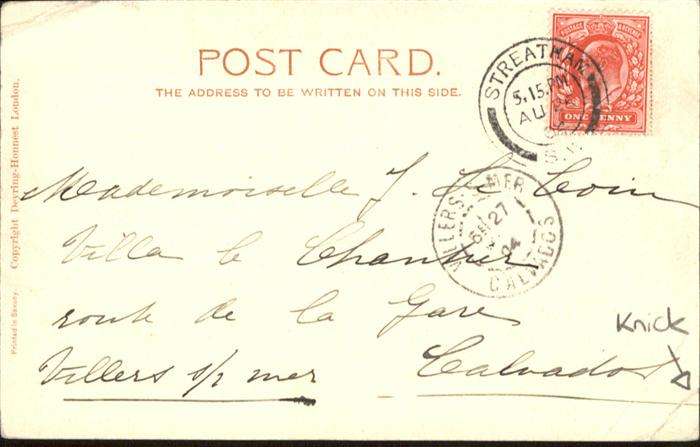 POST CARD.
THE ADDRESS TO BE WRITTEN ON THIS SIDE.
STREATHAM
5.15.PM
AU
S.W.
POSTAGE
ONE PENNY
Copyright Deyring-Honnest London.
Printed in Saxony.
Mademoiselle J. Le Coin
VILLERS S MER
27
04
CALVADOS
Villa le Chantier
route de la Gare
Knick
Villers s/ mer Calvados